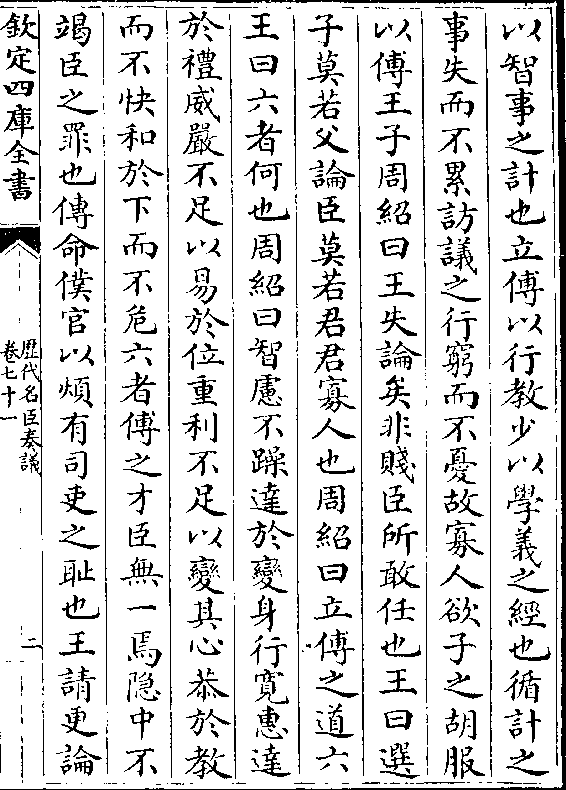 以智事之計也立傅以行教少以學義之經也循計之
事失而不累訪議之行窮而不憂故寡人欲子之胡服
以傅王子周紹曰王失論矣非賤臣所敢任也王曰選
子莫若父論臣莫若君君寡人也周紹曰立傅之道六
王曰六者何也周紹曰智慮不躁達於變身行寬惠達
於禮威嚴不足以易於位重利不足以變其心恭於教
而不快和於下而不危六者傅之才臣無一焉隠中不
竭臣之罪也傅命僕官以煩有司吏之耻也王請更論
欽定四庫全書
歴代名臣奏議
卷七十一
二